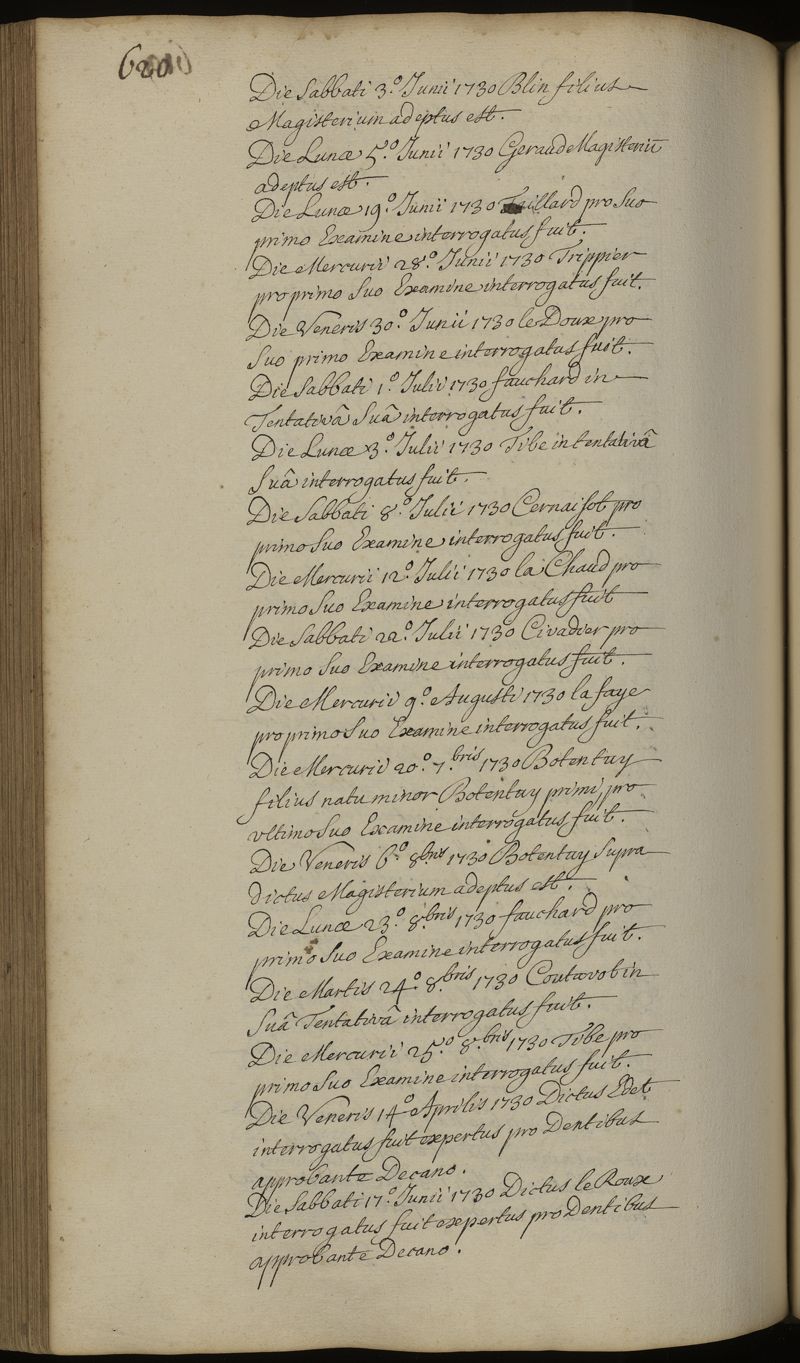 620
Die Sabbati 3.º Junii 1730 Blin filius
Magisterium adeptus est.
Die Lunæ 5.º Junii 1730 Geraud Magisteriū
adeptus est.
Die Lunæ 19.º Junii 1730 Taillard pro suo
primo Examine interrogatus fuit.
Die Mercurii 28.º Junii 1730 Trippier
pro primo suo Examine interrogatus fuit.
Die Veneris 30.º Junii 1730 le Doux pro
suo primo Examine interrogatus fuit.
Die Sabbati 1.º Julii 1730 fauchard in
Tentativâ Suâ interrogatus fuit.
Die Lunæ 3.º Julii 1730 Tibe in tentativâ
Suâ interrogatus fuit.
Die Sabbati 8.º Julii 1730 Cernaisot pro
primo suo Examine interrogatus fuit.
Die Mercurii 12.º Julii 1730 la Chaud pro
primo Suo Examine interrogatus fuit
Die Sabbati 22.º Julii 1730 Civadier pro
primo suo Examine interrogatus fuit.
Die Mercurii 9.º Augusti 1730 la faye
pro primo suo Examine interrogatus fuit.
Die Mercurii 20.º 7.bris 1730 Botentuy
filius natu minor Botentuy primi, pro
ultimo suo Examine interrogatus fuit.
Die Veneris 6.º 8.bris 1730 Botentuy Supra
dictus Magisterium adeptus est.
Die Lunæ 23.º 8.bris 1730 fauchard pro
primo suo Examine interrogatus fuit.
Die Martis 24.º 8.bris 1730 in
Suâ Tentativâ interrogatus fuit.
Die Mercurii 25.º 8.bris 1730 Tibe pro
primo Suo Examine interrogatus fuit.
Die Veneris 14.º Aprilis 1730 Dictus
interrogatus fuit expertus pro Dentibus
approbante Decano.
Die Sabbati 17.º Junii 1730 Dictus le Roux
interrogatus fuit expertus pro Dentibus
approbante Decano.